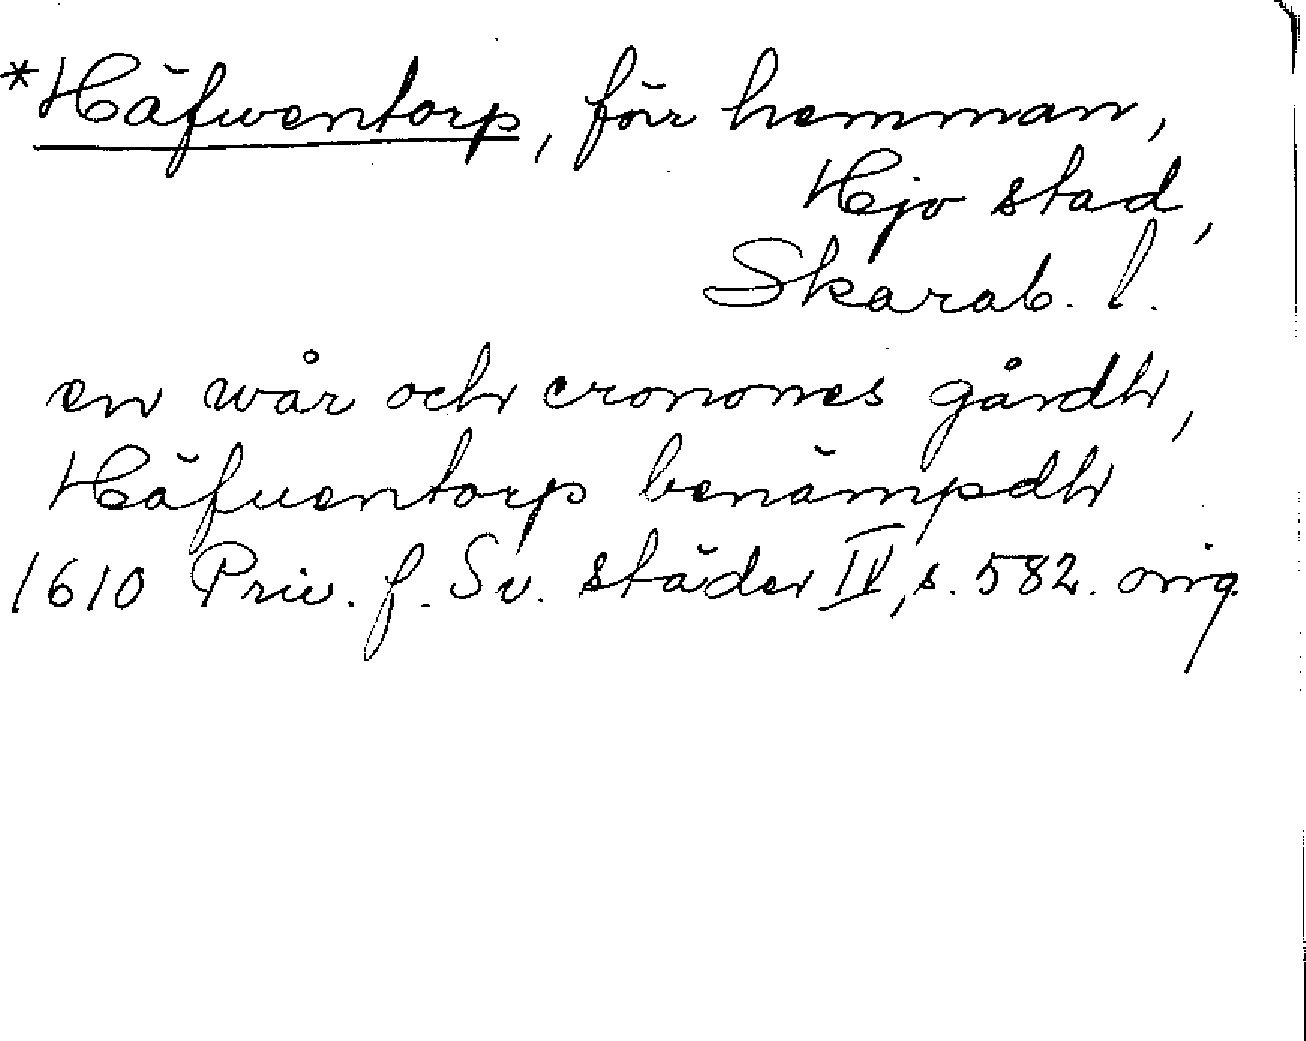 *Häfwentorp, förr hemman,
Hjo stad,
Skarab. l.
en wår och cronones gårdh,
Häfuentorp benämpdh
1610 Priv. f. Sv. städer IV, s. 582. orig.